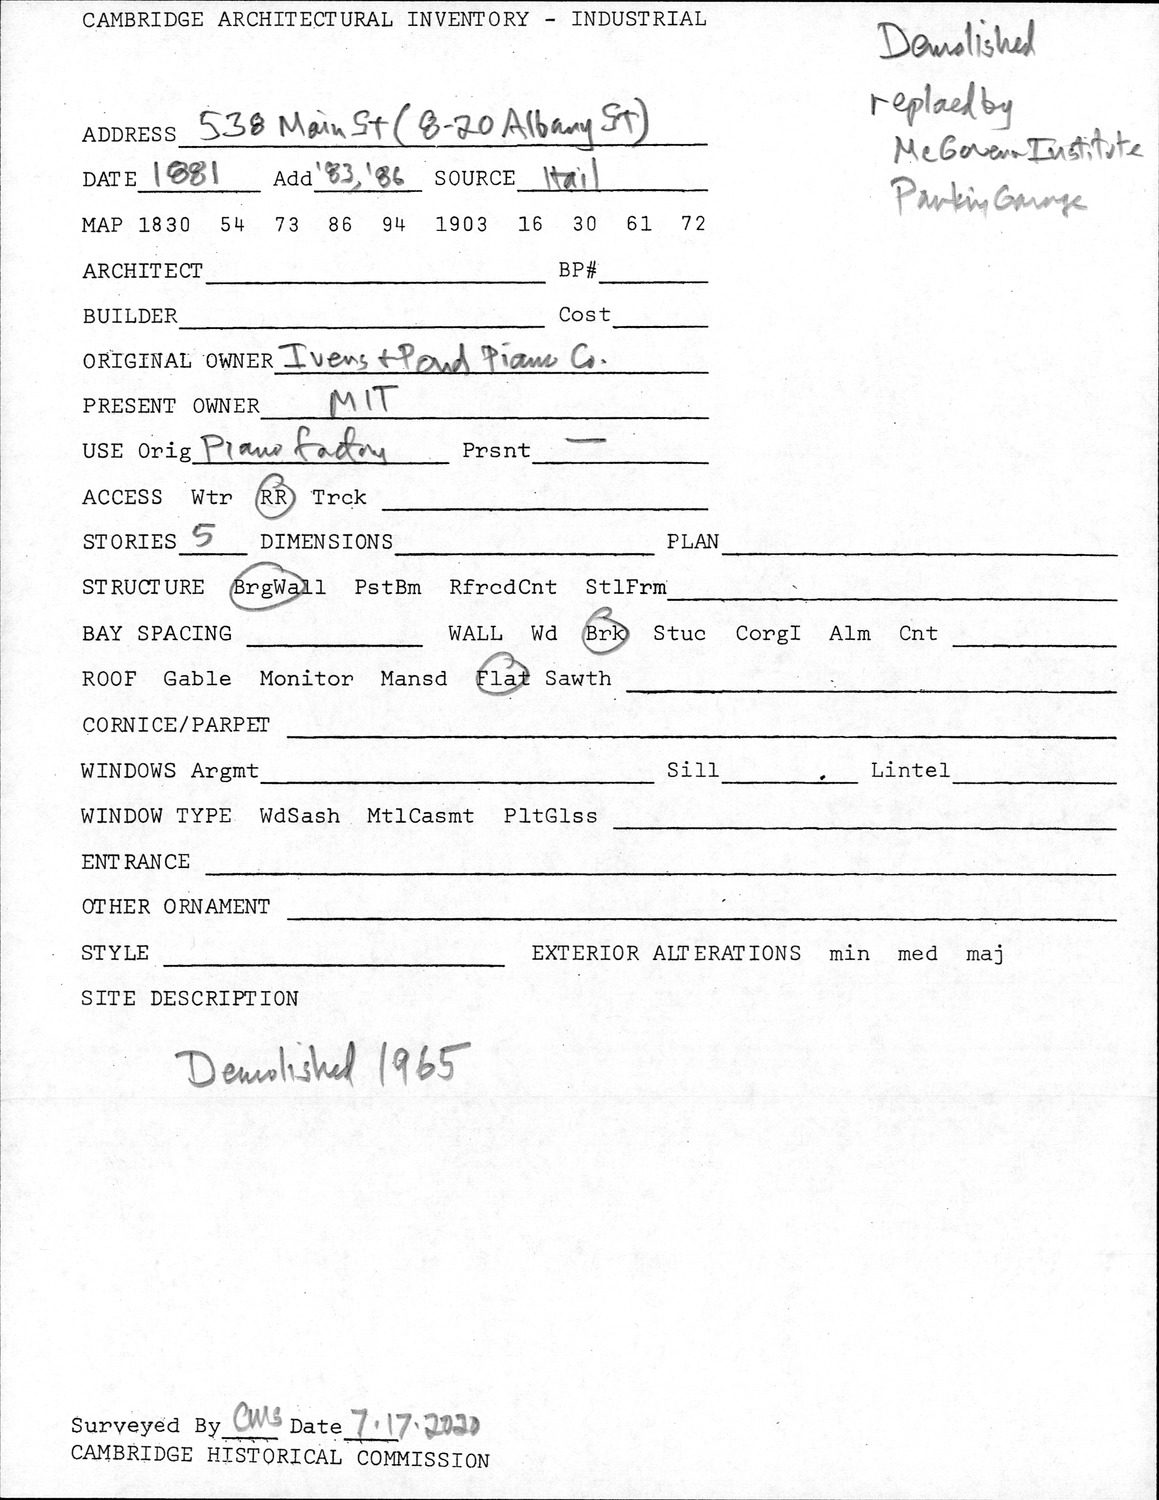 CAMBRIDGE ARCHITECTURAL INVENTORY - INDUSTRIAL
Demolished
replaed by
McGovern Institute
Parking Garage
ADDRESS 538 Main St (8-20 Albany St)
DATE 1881 Add '83, '86 SOURCE Hail
MAP 1830 54 73 86 94 1903 16 30 61 72
ARCHITECT BP#
BUILDER Cost
ORIGINAL OWNER Ivers + Pond Piano Co.
PRESENT OWNER MIT
USE Orig Piano factory Prsnt —
ACCESS Wtr RR Trck
STORIES 5 DIMENSIONS PLAN
STRUCTURE BrgWall PstBm RfrcdCnt StlFrm
BAY SPACING WALL Wd Brk Stuc CorgI Alm Cnt
ROOF Gable Monitor Mansd Flat Sawth
CORNICE/PARPET
WINDOWS Argmt Sill Lintel
WINDOW TYPE WdSash MtlCasmt PltGlss
ENTRANCE
OTHER ORNAMENT
STYLE EXTERIOR ALTERATIONS min med maj
SITE DESCRIPTION
Demolished 1965
Surveyed By CMS Date 7.17.2020
CAMBRIDGE HISTORICAL COMMISSION